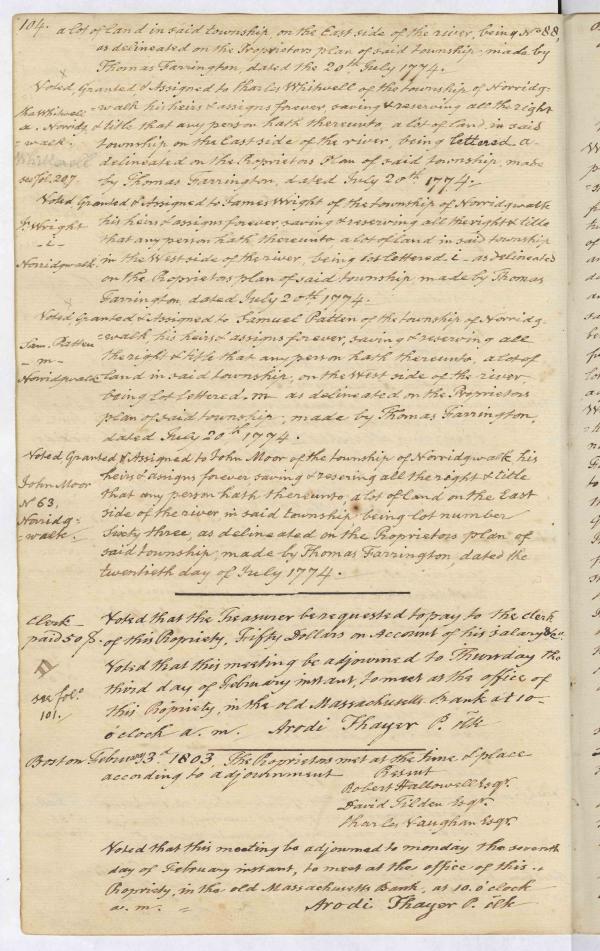 104. a lot of land in said township, on the East side of the river, being No 88,
as delineated on the Proprietors plan of said township, made by
Thomas Farrington, dated the 20th July 1774.
Voted, Granted & Assigned to Charles Whitwell of the township of Norridg-
Chs Whitwell =walk his heirs & assigns forever, saving & reserving all the right
a. Norridg & title that any person hath thereunto, a lot of land, in said
=walk. township on the East side of the river, being lettered a-
delineated on the Proprietors Plan of said township, made
see fol. 207. by Thomas Farrington, dated July 20th 1774.
Voted Granted & Assigned to James Wright of the township of Norridgwalk
Js Wright his heirs & assigns forever saving & reserving all the right & title
-i- that any person hath thereunto a lot of land in said township
Norridgwalk. in the West side of the river, being lot lettered i- as delineated
on the Proprietors plan of said township made by Thomas
Farrington, dated July 20th 1774.
Voted, Granted & Assigned to Samuel Patten of the township of Norridg-
Sam. Patten =walk, his heirs & assigns forever, saving & reserving all
-m- the right & title that any person hath thereunto, a lot of
Norridgwalk land in said township, on the West side of the river,
being lot lettered m as delineated on the Proprietors
plan of said township, made by Thomas Farrington,
dated July 20th 1774.
Voted Granted & Assigned to John Moor of the township of Norridgwalk his
John Moor heirs & assigns forever saving & resering all the right & title
No 63, that any person hath thereunto, a lot of land on the East
Norridg- side of the river in said township being lot number
=walk. Sixty three, as delineated on the Proprietors plan of
said township, made by Thomas Farrington, dated the
twentieth day of July 1774.
Clerk Voted that the Treasurer be requested to pay to the clerk
paid 50 $. of this Propriety, Fifty Dollars on Account of his salary &c.
Voted that this meeting be adjourned to Thursday the
see folo third day of February instant, to meet at the office of
101. this Propriety, in the old Massachusetts Bank at 10-
o'clock a. m. Arodi Thayer P. Clk
Boston February 3.d 1803. The Proprietors met at the time & place
according to adjournment Present
Robert Hallowell Esqr.
David Tilden Esqr.
Charles Vaughan Esqr.
Voted that this meeting be adjourned to monday the seventh
day of February instant, to meet at the office of this
Propriety, in the old Massachusetts Bank, at 10. o'clock
a. m. = Arodi Thayer P. Clk